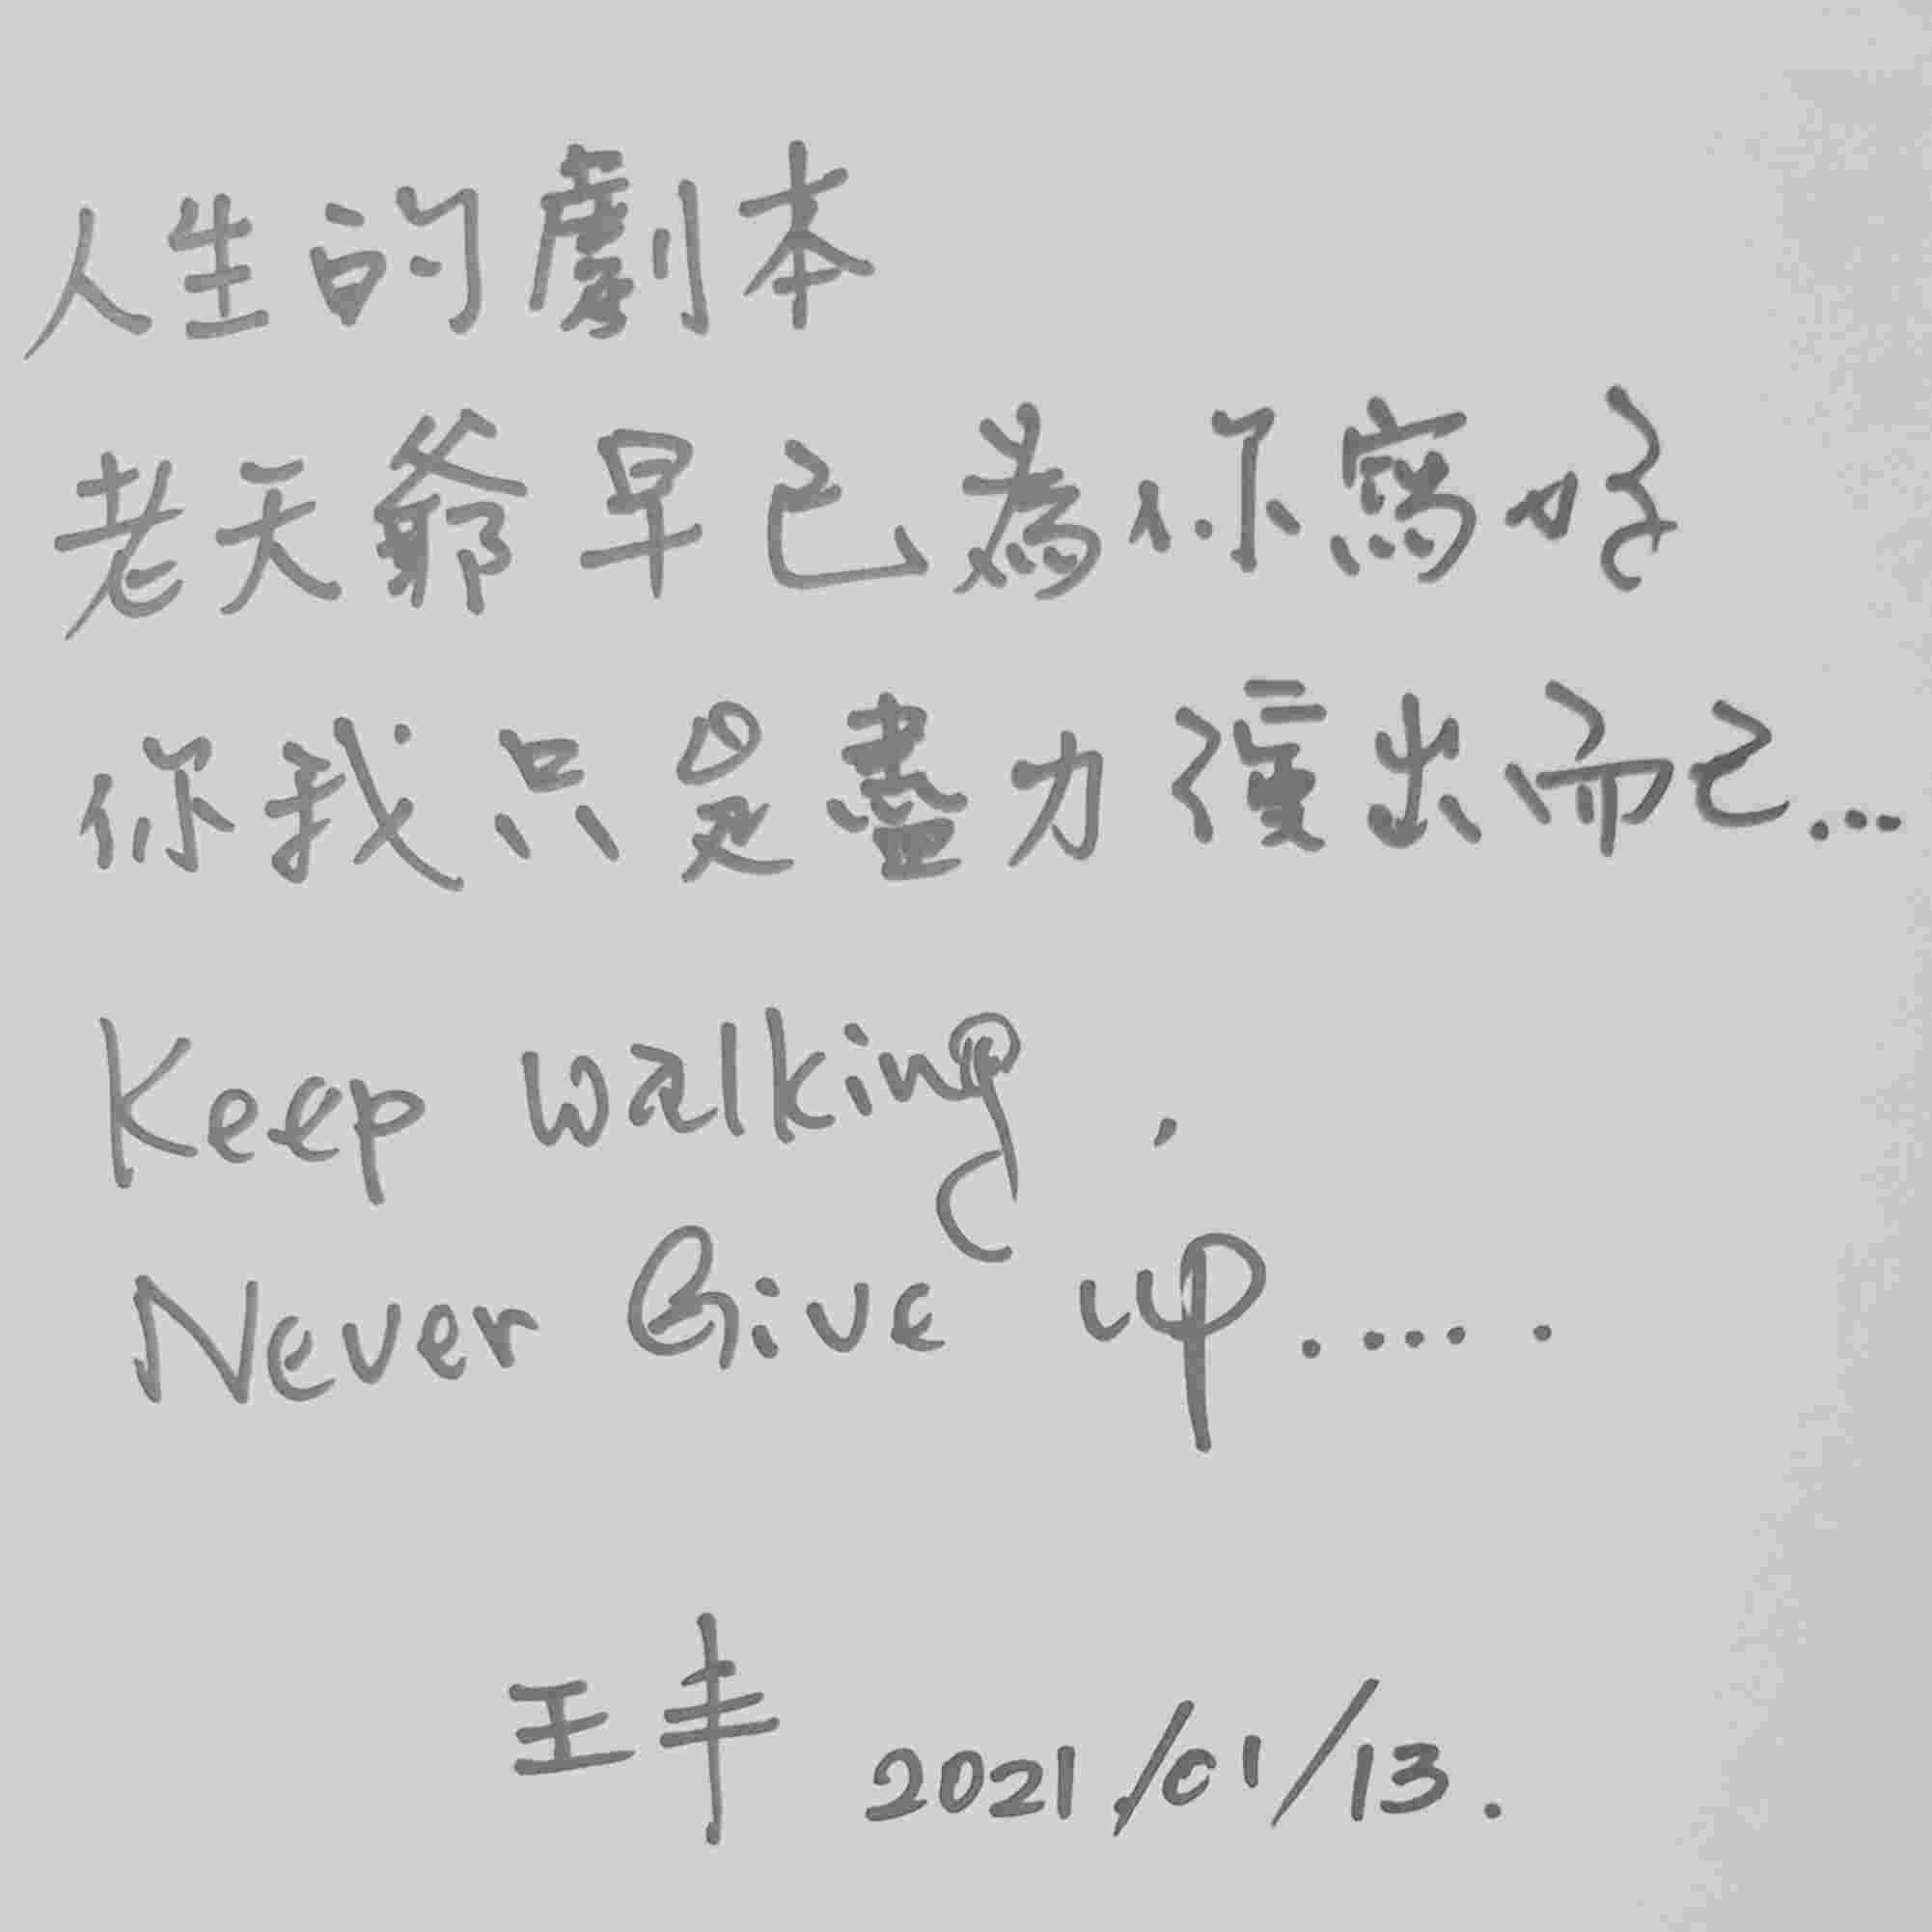 人生的劇本
老天爺早已為你寫好
你我只是盡力演出而已...
Keep walking,
Never Give up.....
王丰 2021/01/13.